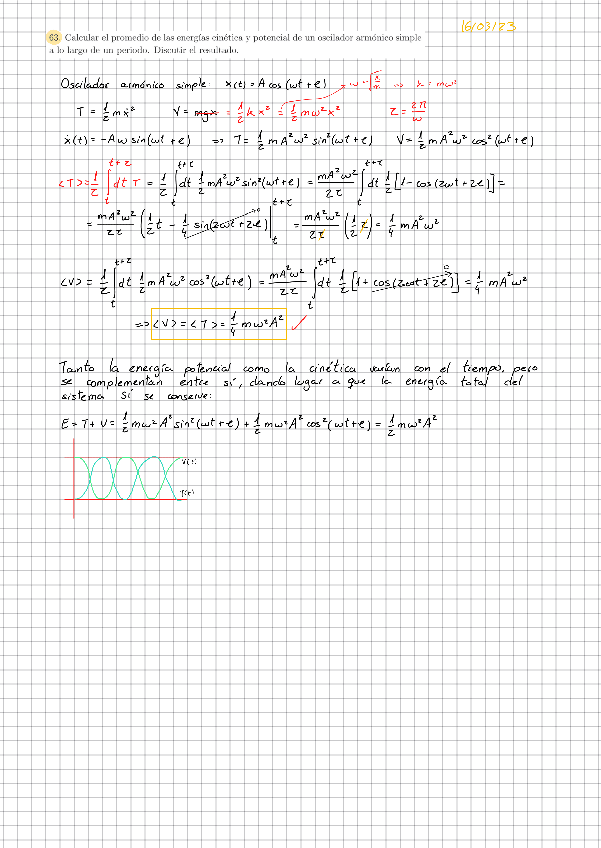 16/03/23
63. Calcular el promedio de las energías cinética y potencial de un oscilador armónico simple
a lo largo de un periodo. Discutir el resultado.
Oscilador armónico simple: x(t) = A cos(ωt + ℓ) → ω = √(k/m) ⇒ k = mω²
T = 1/2 m ẋ² V = mgx = 1/2 k x² = 1/2 mω²x² τ = 2π/ω
ẋ(t) = -Aω sin(ωt + ℓ) ⇒ T = 1/2 mA²ω² sin²(ωt + ℓ) V = 1/2 mA²ω² cos²(ωt + ℓ)
<T> = 1/τ ∫_t^{t+τ} dt T = 1/τ ∫_t^{t+τ} dt 1/2 mA²ω² sin²(ωt+ℓ) = mA²ω²/2τ ∫_t^{t+τ} dt 1/2 [1 - cos(2ωt + 2ℓ)] =
= mA²ω²/2τ (1/2 t - 1/4 sin(2ωt + 2ℓ))|_t^{t+τ} = mA²ω²/2τ (1/2 τ) = 1/4 mA²ω²
<V> = 1/τ ∫_t^{t+τ} dt 1/2 mA²ω² cos²(ωt+ℓ) = mA²ω²/2τ ∫_t^{t+τ} dt 1/2 [1 + cos(2ωt + 2ℓ)] = 1/4 mA²ω²
⇒ <V> = <T> = 1/4 mω²A² ✓
Tanto la energía potencial como la cinética varían con el tiempo, pero
se complementan entre sí, dando lugar a que la energía total del
sistema sí se conserve:
E = T + V = 1/2 mω²A² sin²(ωt + ℓ) + 1/2 mω²A² cos²(ωt + ℓ) = 1/2 mω²A²
V(t)
T(t)